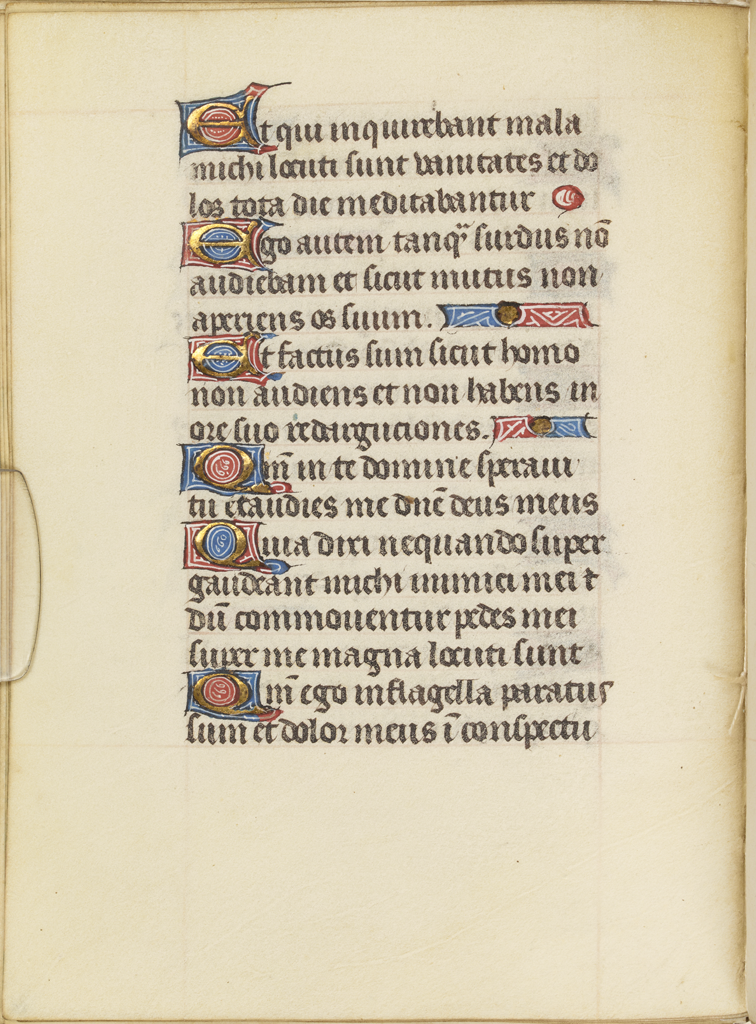 Et qui inquirebant mala
michi locuti sunt vanitates et do
los tota die meditabantur
Ego autem tanqᷓ surdus nō
audiebam et sicut mutus non
aperiens os suum.
Et factus sum sicut homo
non audiens et non habens in
ore suo redarguciones.
Qm̄ in te domine speraui
tu exaudies me dn̄e deus meus
Quia dixi nequando super
gaudeant michi inimici mei ⁊
dū commouentur pedes mei
super me magna locuti sunt
Qm̄ ego in flagella paratus
sum et dolor meus ī conspectu